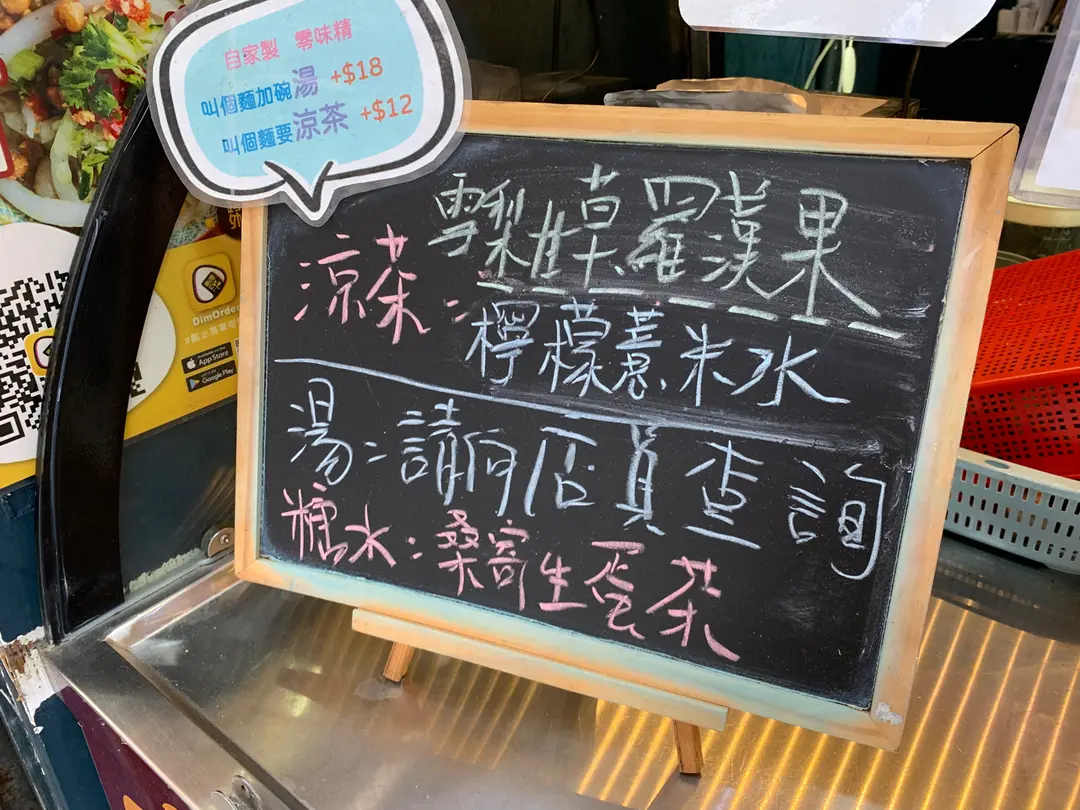 自家製 零味精
叫個麵加碗湯 +$18
叫個麵要涼茶 +$12
雪梨草羅漢果
涼茶：
檸檬薏米水
湯：請向店員查詢
糖水：桑寄生蛋茶
DimOrder
App Store
Google Play